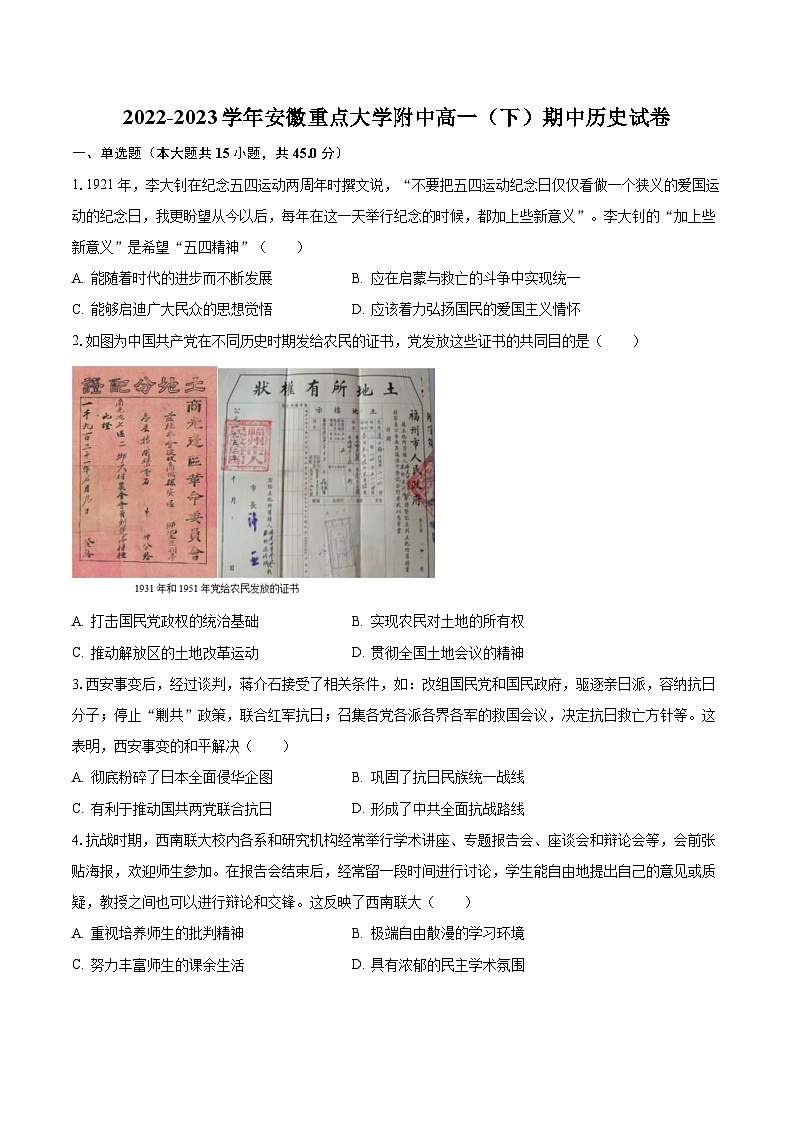 2022-2023学年安徽重点大学附中高一（下）期中历史试卷
一、单选题（本大题共15小题，共45.0分）
1. 1921年，李大钊在纪念五四运动两周年时撰文说，“不要把五四运动纪念日仅仅看做一个狭义的爱国运
动的纪念日，我更盼望从今以后，每年在这一天举行纪念的时候，都加上些新意义”。李大钊的“加上些
新意义”是希望“五四精神”（　　）
A. 能随着时代的进步而不断发展 B. 应在启蒙与救亡的斗争中实现统一
C. 能够启迪广大民众的思想觉悟 D. 应该着力弘扬国民的爱国主义情怀
2. 如图为中国共产党在不同历史时期发给农民的证书，党发放这些证书的共同目的是（　　）
證配分地土
商光边區革命委員會
一千九百三十一年
狀權有所地土
福州市人民政府
市長
1931年和1951年党给农民发放的证书
A. 打击国民党政权的统治基础 B. 实现农民对土地的所有权
C. 推动解放区的土地改革运动 D. 贯彻全国土地会议的精神
3. 西安事变后，经过谈判，蒋介石接受了相关条件，如：改组国民党和国民政府，驱逐亲日派，容纳抗日
分子；停止“剿共”政策，联合红军抗日；召集各党各派各界各军的救国会议，决定抗日救亡方针等。这
表明，西安事变的和平解决（　　）
A. 彻底粉碎了日本全面侵华企图 B. 巩固了抗日民族统一战线
C. 有利于推动国共两党联合抗日 D. 形成了中共全面抗战路线
4. 抗战时期，西南联大校内各系和研究机构经常举行学术讲座、专题报告会、座谈会和辩论会等，会前张
贴海报，欢迎师生参加。在报告会结束后，经常留一段时间进行讨论，学生能自由地提出自己的意见或质
疑，教授之间也可以进行辩论和交锋。这反映了西南联大（　　）
A. 重视培养师生的批判精神 B. 极端自由散漫的学习环境
C. 努力丰富师生的课余生活 D. 具有浓郁的民主学术氛围